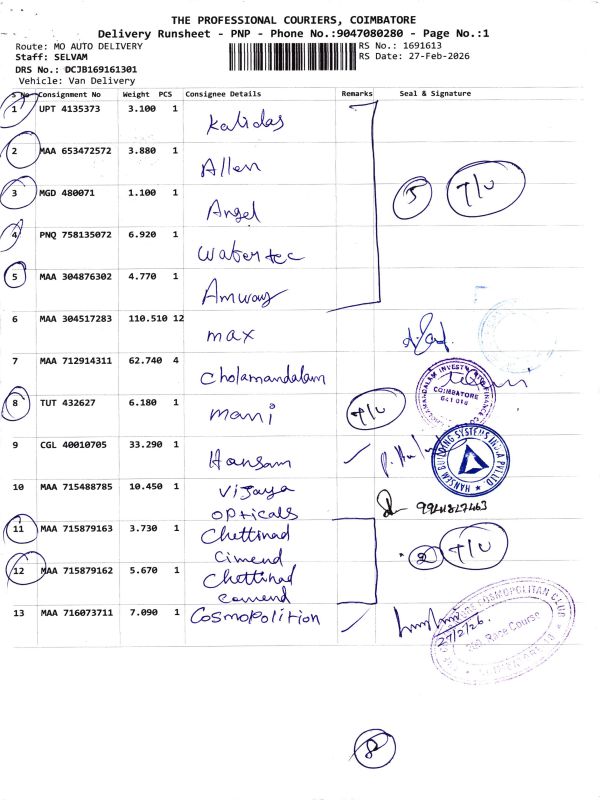 THE PROFESSIONAL COURIERS, COIMBATORE
Delivery Runsheet - PNP - Phone No.:9047080280 - Page No.:1
Route: MO AUTO DELIVERY RS No.: 1691613
Staff: SELVAM RS Date: 27-Feb-2026
DRS No.: DCJB169161301
Vehicle: Van Delivery
S No Consignment No Weight PCS Consignee Details Remarks Seal & Signature
1 UPT 4135373 3.100 1 Kalidas
2 MAA 653472572 3.880 1 Allen
3 MGD 480071 1.100 1 Angel 5 T/U
4 PNQ 758135072 6.920 1 Watertec
5 MAA 304876302 4.770 1 Amway
6 MAA 304517283 110.510 12 max
7 MAA 712914311 62.740 4 Cholamandalam
COIMBATORE
8 TUT 432627 6.180 1 mani T/U
9 CGL 40010705 33.290 1 Hansam ✓
HANSAM BUILDING SYSTEMS INDIA PVT LTD
10 MAA 715488785 10.450 1 Vijaya
opticals
11 MAA 715879163 3.730 1 Chettinad
Cimend 2 T/U
12 MAA 715879162 5.670 1 Chettinad
cemend
13 MAA 716073711 7.090 1 Cosmopolition ✓
27/2/26.
COSMOPOLITAN CLUB
Race Course
8